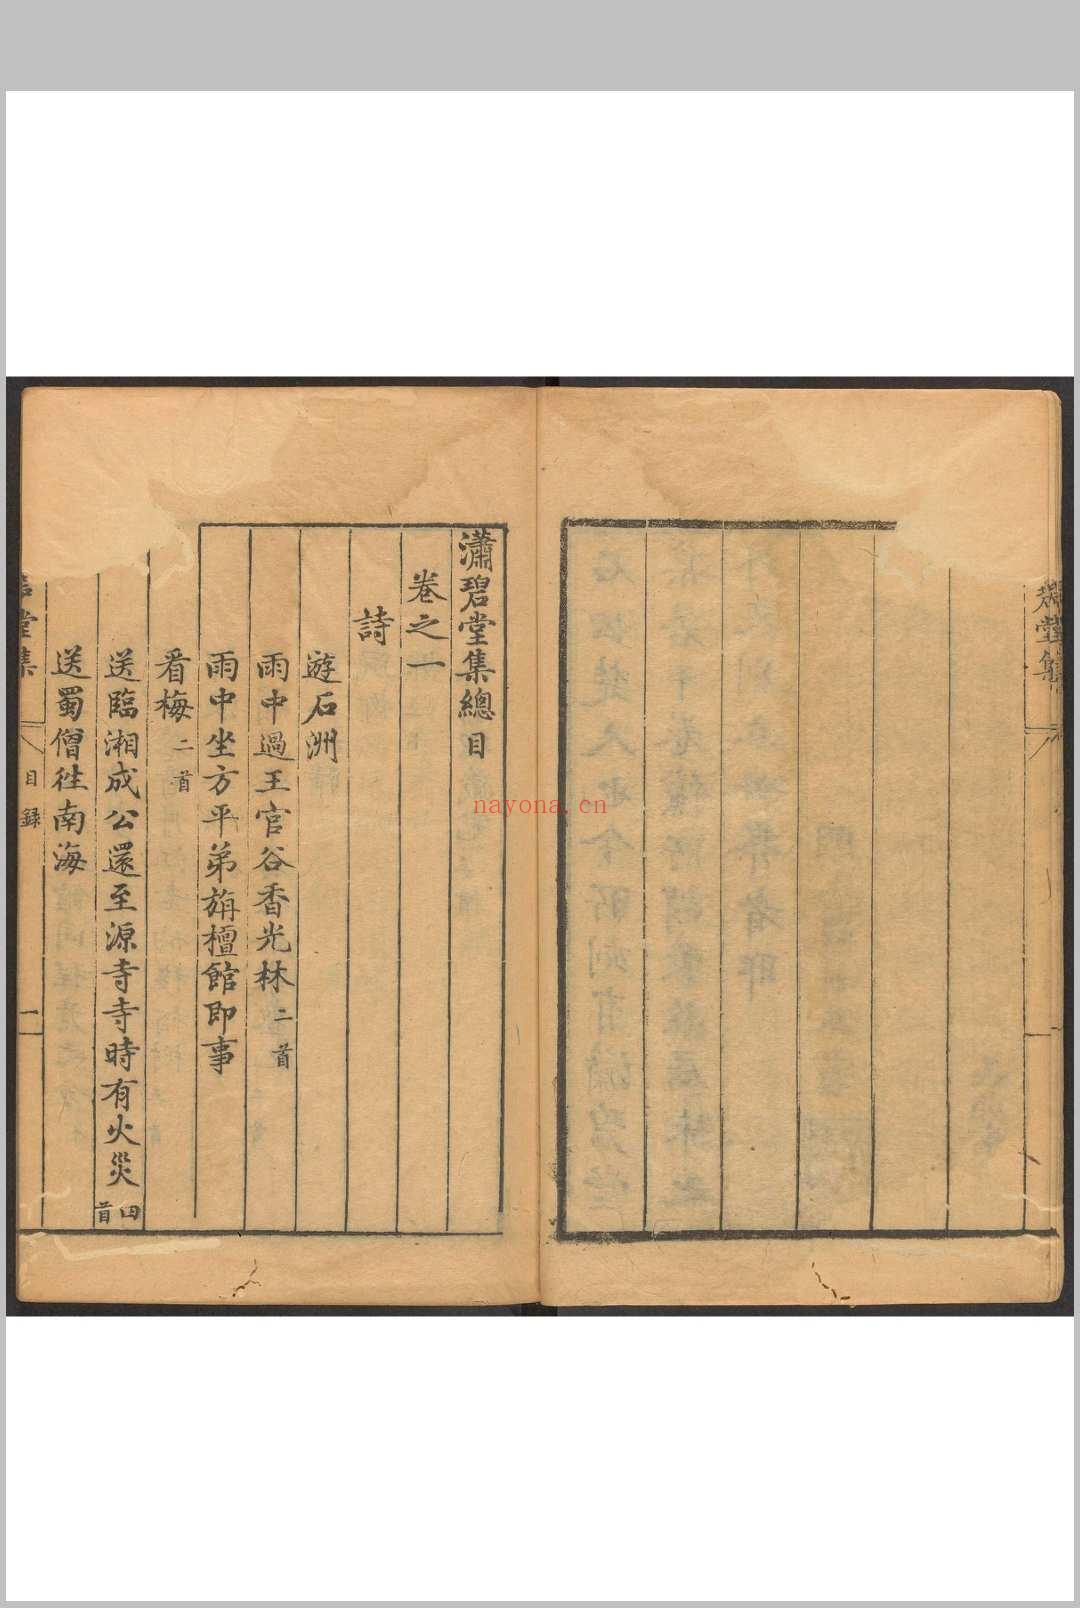 堂集
瀟碧堂集總目
卷之一
詩
遊石洲
雨中過王官谷香光林二首
雨中坐方平弟旃檀館即事
看梅二首
送臨湘成公還至源寺寺時有火災四首
送蜀僧徃南海
堂集
目録
一
nayona.cn